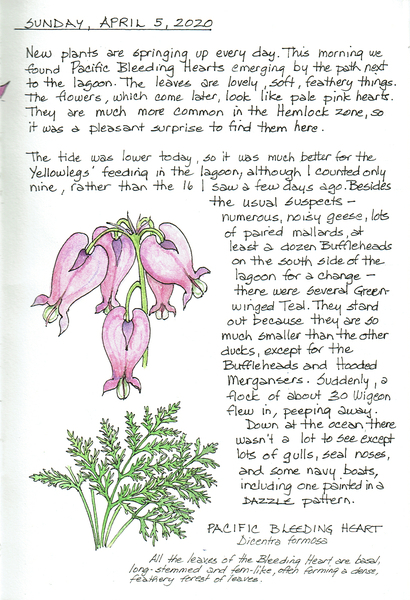 SUNDAY, APRIL 5, 2020
New plants are springing up every day. This morning we
found Pacific Bleeding Hearts emerging by the path next
to the lagoon. The leaves are lovely, soft, feathery things.
The flowers, which come later, look like pale pink hearts.
They are much more common in the Hemlock zone, so
it was a pleasant surprise to find them here.
The tide was lower today, so it was much better for the
Yellowlegs' feeding in the lagoon, although I counted only
nine, rather than the 16 I saw a few days ago. Besides
the usual suspects –
numerous, noisy geese, lots
of paired mallards, at
least a dozen Buffleheads
on the south side of the
lagoon for a change –
there were several Green-
winged Teal. They stand
out because they are so
much smaller than the other
ducks, except for the
Buffleheads and Hooded
Mergansers. Suddenly, a
flock of about 30 Wigeon
flew in, peeping away.
Down at the ocean, there
wasn't a lot to see except
lots of gulls, seal noses,
and some navy boats,
including one painted in a
DAZZLE pattern.
PACIFIC BLEEDING HEART
Dicentra formosa
All the leaves of the Bleeding Heart are basal,
long-stemmed and fern-like, often forming a dense,
feathery forest of leaves.